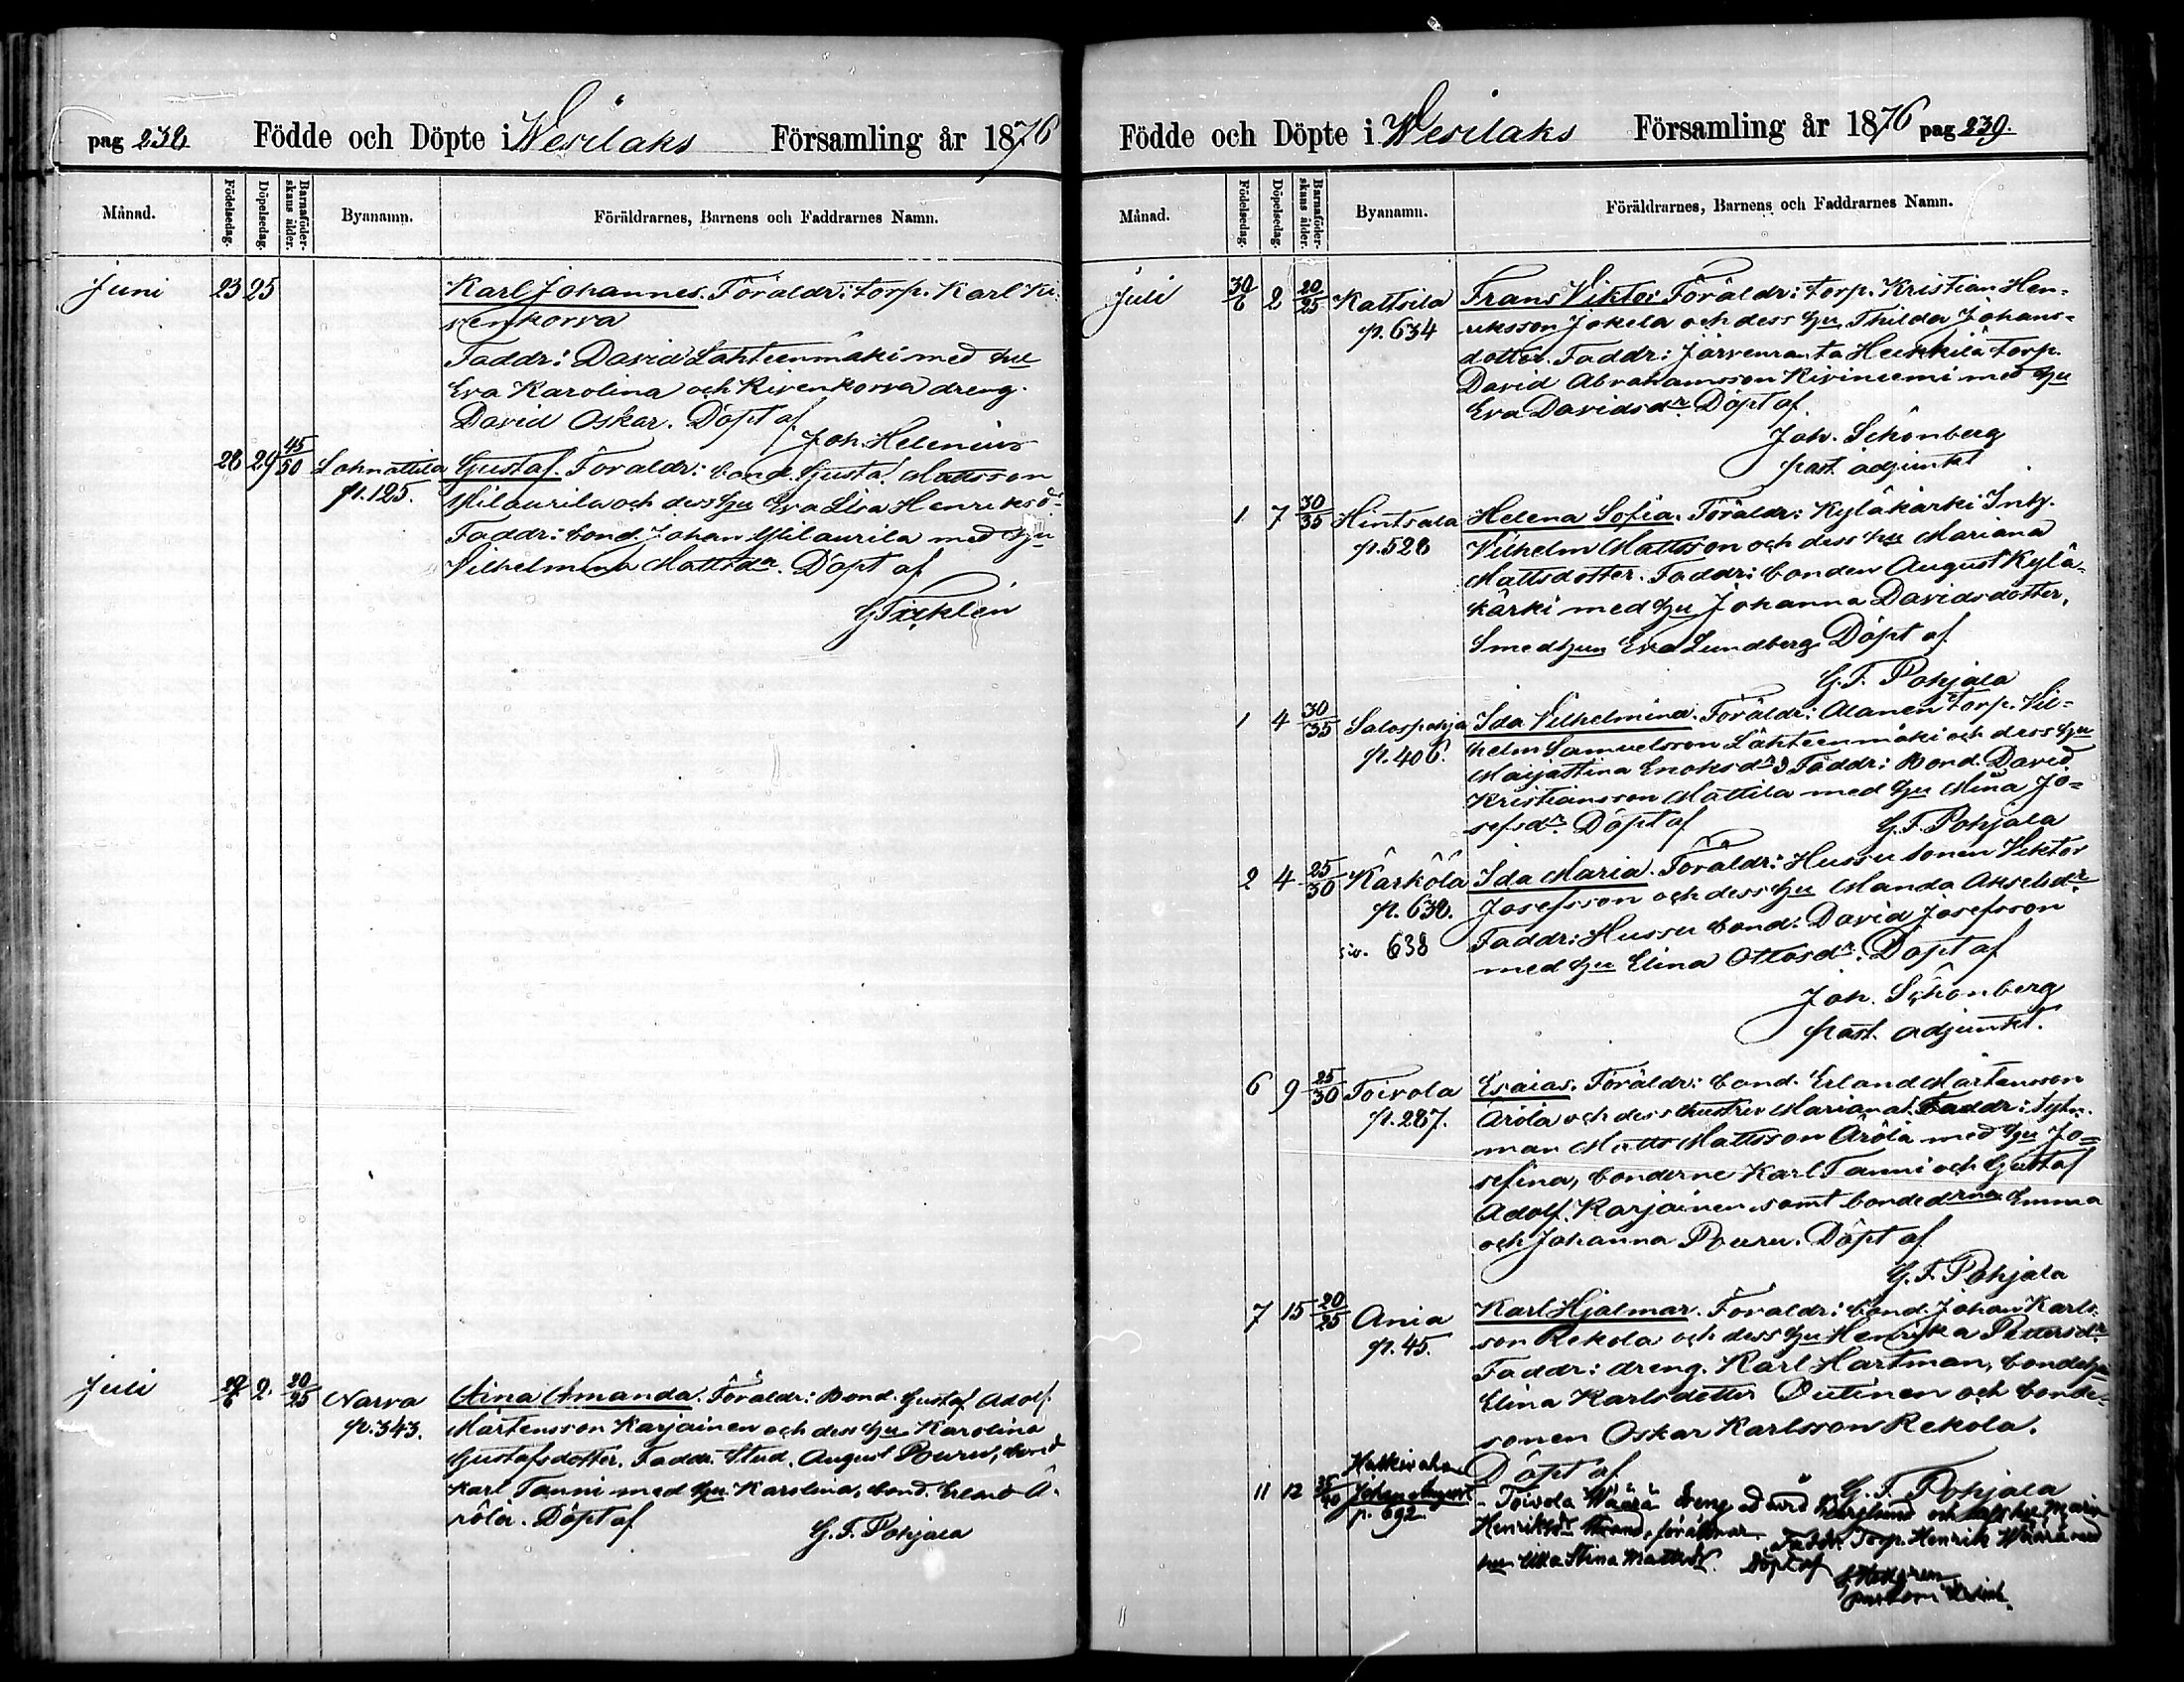 pag 238 Födde och Döpte i Wesilaks Församling år 1876
Månad. Födelsedag. Döpelsedag. Barnaföder-skans ålder. Byanamn. Föräldrarnes, Barnens och Faddrarnes Namn.
Juni 23 25 Karl Johannes. Föräldr: torp. Karl Ki-
venkorva
Faddr: David Lähteenmäki med hu
Eva Karolina och Kivenkorva dreng.
David Oskar. Döpt af
Joh. Helenius
28 29 45/50 Lahnattila Gustaf. Föräldr: bond. Gustaf Mattsson
p. 125. Ylilaurila och dess hu Eva Lisa Henriksdr
Faddr: bond. Johan Ylilaurila med hu
Vilhelmina Mattsdr. Döpt af
Juli 2 20/25 Narva Aina Amanda. Föräldr: Bond. Gustaf Adolf
p. 343. Mårtensson Karjainen och dess hu Karolina
Gustafsdotter. Faddr: Stud. August Pouru, bond
Karl Tanni med hu Karolina, bond. Erland Ä-
rölä. Döpt af
G. F. Pohjala
Födde och Döpte i Wesilaks Församling år 1876 pag 239.
Månad. Födelsedag. Döpelsedag. Barnaföder-skans ålder. Byanamn. Föräldrarnes, Barnens och Faddrarnes Namn.
Juli 30/6 2 20/25 Kaltsila Frans Viktor Föräldr: torp. Kristian Hen-
p. 634 riksson Jokela och dess hu Thilda Johans-
dotter. Faddr: Järvenranta Heikkilä torp.
David Abrahamsson Kiviniemi med hu
Eva Davidsdr. Döpt af
Joh. Schönberg
past. adjunkt
1 7 30/35 Hintsala Helena Sofia. Föräldr: Kyläkärki Inhy.
p. 528 Vilhelm Mattsson och dess hu Mariana
Mattsdotter. Faddr: bonden August Kylä-
kärki med hu Johanna Davidsdotter,
Smedhun Eva Lundberg Döpt af
G. F. Pohjala
1 4 30/35 Salospohja Ida Vilhelmina. Föräldr: Alanen torp. Vil-
p. 406. helm Samuelsson Lähteenmäki och dess hu
Maijastina Enoksdr Faddr: Bond. David
Kristiansson Mattila med hu Mina Jo-
sefsdr. Döpt af G. F. Pohjala
2 4 25/30 Kärkölä Ida Maria. Föräldr: Hussu sonen Viktor
p. 638. Josefsson och dess hu Manda Akselsdr.
638 Faddr: Hussu bond. David Josefsson
med hu Elina Ottosdr. Döpt af
Joh. Schönberg
past. adjunkt.
6 9 25/30 Toivola Esaias. Föräldr: bond. Erland Mårtensson
p. 287. Ärölä och dess hustru Mariana. Faddr: Sytn.
man Matts Mattsson Ärölä med hu Jo-
sefina, bönderne Karl Tanni och Gustaf
Adolf Karjainen samt bondedrna Emma
och Johanna Pouru. Döpt af
G. F. Pohjala
7 15 20/25 Ania Karl Hjalmar. Föräldr: bond. Johan Karls-
p. 45. son Rekola och dess hu Henrika Pettersdr
Faddr: dreng. Karl Hartman, bondehu
Elina Karlsdotter Outinen och bonde-
sonen Oskar Karlsson Rekola.
Döpt af
G. F. Pohjala
11 12 Johan August - Toivola Wäärä dreng Berglund och dess hu Maria
p. 692 Henriksdr föräldrar. Faddr: Torp. Henrik Wäärä med
hu Ulla Stina Mattsdr. Döpt af